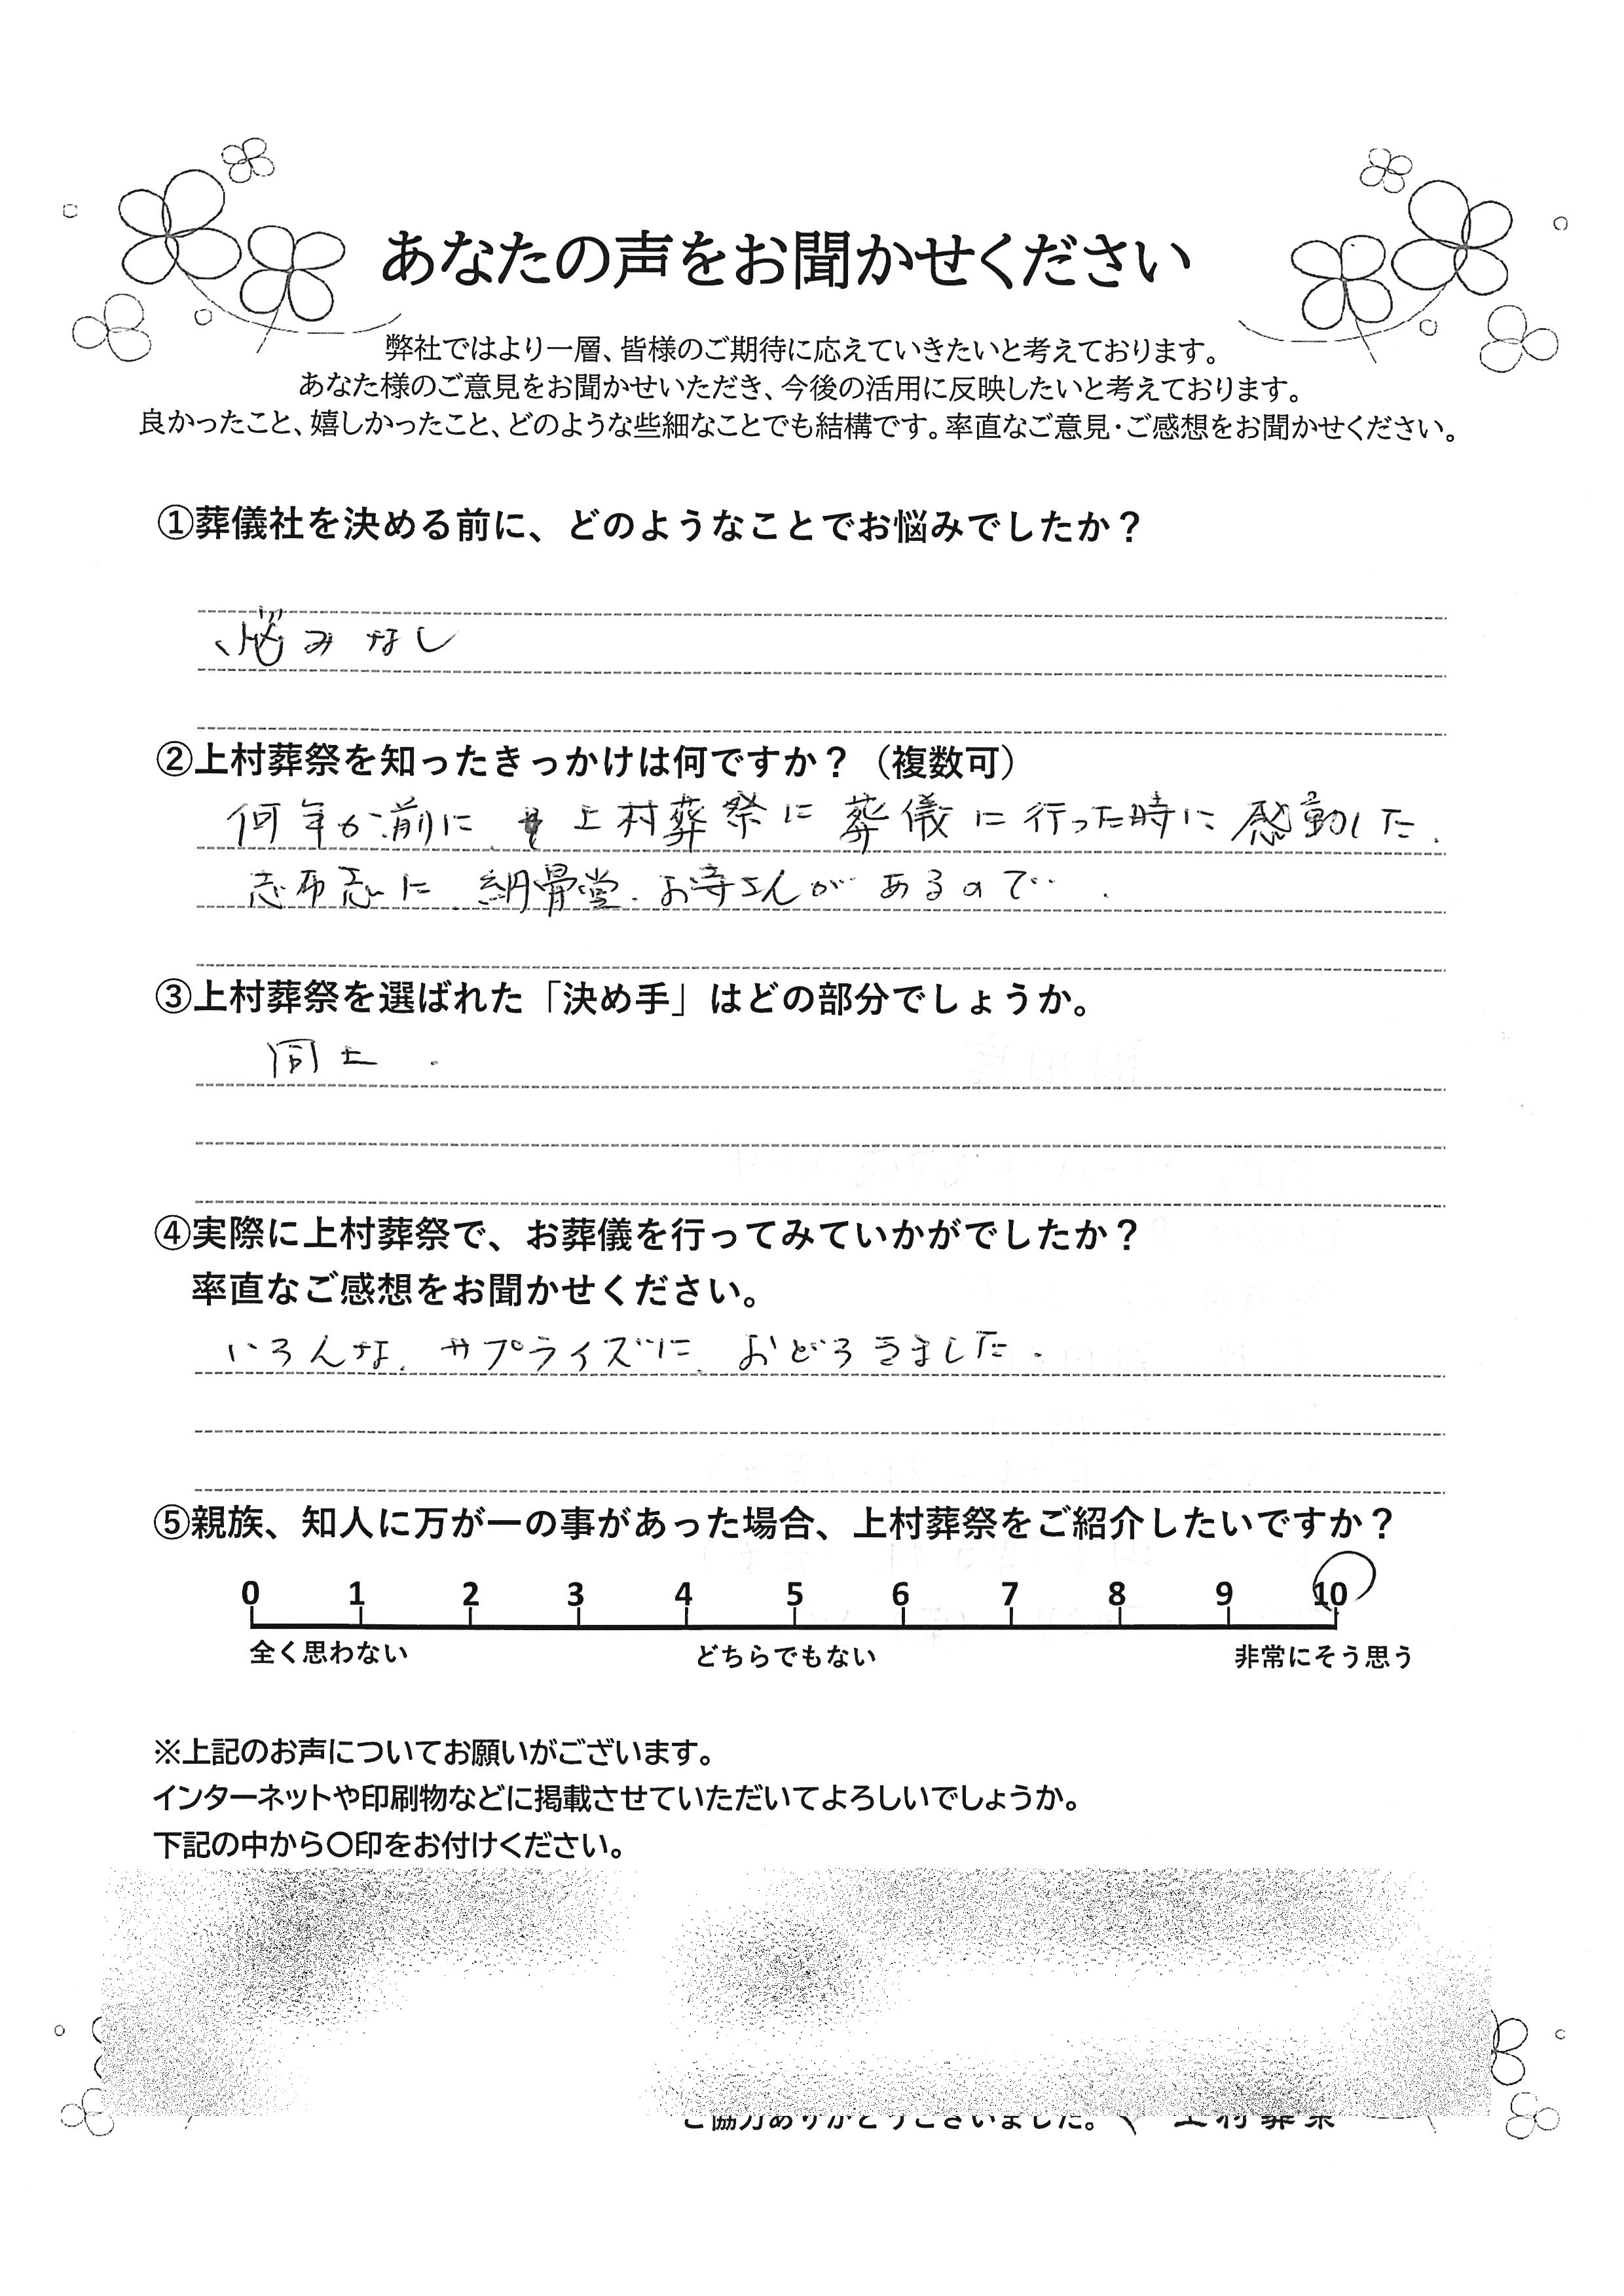 あなたの声をお聞かせください
弊社ではより一層、皆様のご期待に応えていきたいと考えております。
あなた様のご意見をお聞かせいただき、今後の活用に反映したいと考えております。
良かったこと、嬉しかったこと、どのような些細なことでも結構です。率直なご意見・ご感想をお聞かせください。
①葬儀社を決める前に、どのようなことでお悩みでしたか？
悩みなし
②上村葬祭を知ったきっかけは何ですか？（複数可）
何年か前に 上村葬祭に葬儀に行った時に感動した.
志布志に.納骨堂.お寺さんがあるので.
③上村葬祭を選ばれた「決め手」はどの部分でしょうか。
同上.
④実際に上村葬祭で、お葬儀を行ってみていかがでしたか？
率直なご感想をお聞かせください。
いろんな.サプライズに.おどろきました.
⑤親族、知人に万が一の事があった場合、上村葬祭をご紹介したいですか？
0 1 2 3 4 5 6 7 8 9 10
全く思わない どちらでもない 非常にそう思う
※上記のお声についてお願いがございます。
インターネットや印刷物などに掲載させていただいてよろしいでしょうか。
下記の中から〇印をお付けください。
ご協力ありがとうございました。 上村葬祭